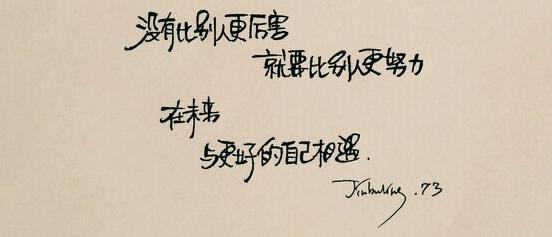 没有比别人更厉害
就要比别人更努力
在未来
与更好的自己相遇.
.73